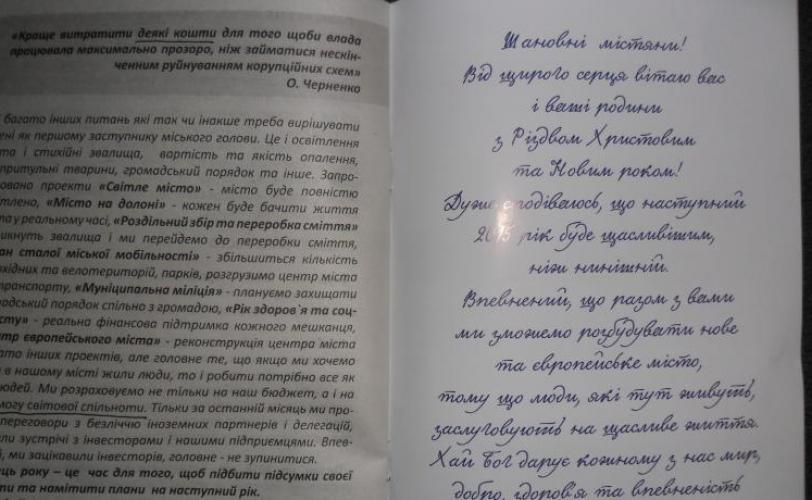 «Краще витратити деякі кошти для того щоби влада
працювала максимально прозоро, ніж займатися нескін-
ченним руйнуванням корупційних схем»
О. Черненко
багато інших питань які так чи інакше треба вирішувати
ені як першому заступнику міського голови. Це і освітлення
та і стихійні звалища, вартість та якість опалення,
притульні тварини, громадський порядок та інше. Запро-
овано проекти «Світле місто» - місто буде повністю
ітлено, «Місто на долоні» - кожен буде бачити життя
та у реальному часі, «Роздільний збір та переробка сміття»
икнуть звалища і ми перейдемо до переробки сміття,
ан сталої міської мобільності» - збільшиться кількість
охідних та велотериторій, парків, розгрузимо центр міста
транспорту, «Муніципальна міліція» - плануємо захищати
адський порядок спільно з громадою, «Рік здоров`я та соц-
сту» - реальна фінансова підтримка кожного мешканця,
тр європейського міста» - реконструкція центра міста
ато інших проектів, але головне те, що якщо ми хочемо
в нашому місті жили люди, то і робити потрібно все як
юдей. Ми розраховуємо не тільки на наш бюджет, а і на
могу світової спільноти. Тільки за останній місяць ми про-
переговори з безліччю іноземних партнерів і делегацій,
ли зустрічі з інвесторами і нашими підприємцями. Впев-
й, ми зацікавили інвесторів, головне - не зупинитися.
ець року – це час для того, щоб підбити підсумки своєї
ти та намітити плани на наступний рік.
Шановні містяни!
Від щирого серця вітаю вас
і ваші родини
з Різдвом Христовим
та Новим роком!
Дуже сподіваюсь, що наступний
2015 рік буде щасливішим,
ніж нинішній.
Впевнений, що разом з вами
ми зможемо розбудувати нове
та європейське місто,
тому що люди, які тут живуть,
заслуговують на щасливе життя.
Хай Бог дарує кожному з нас мир,
добро, здоров'я та впевненість